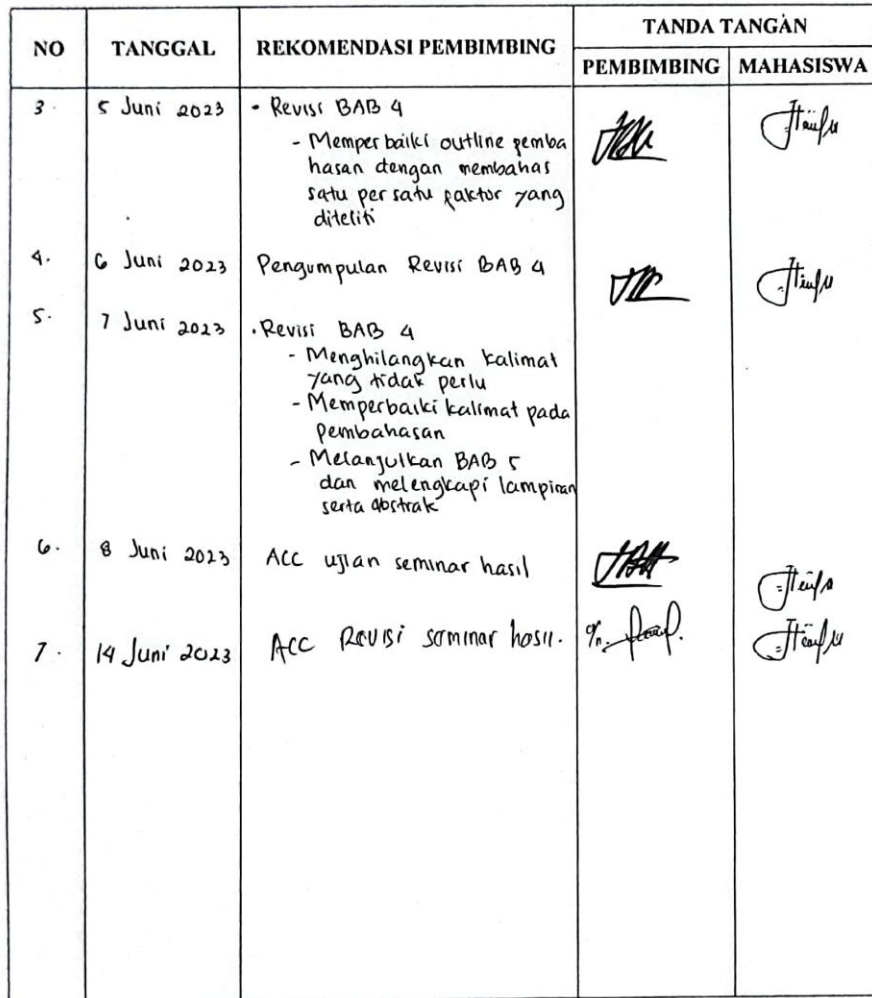 NO TANGGAL REKOMENDASI PEMBIMBING TANDA TANGAN
PEMBIMBING MAHASISWA
3. 5 Juni 2023 • Revisi BAB 4
- Memperbaiki outline pemba
hasan dengan membahas
satu per satu faktor yang
diteliti
4. 6 Juni 2023 Pengumpulan Revisi BAB 4
5. 7 Juni 2023 • Revisi BAB 4
- Menghilangkan kalimat
yang tidak perlu
- Memperbaiki kalimat pada
pembahasan
- Melanjutkan BAB 5
dan melengkapi lampiran
serta abstrak
6. 8 Juni 2023 ACC ujian seminar hasil
7. 14 Juni 2023 ACC Revisi seminar hasil.